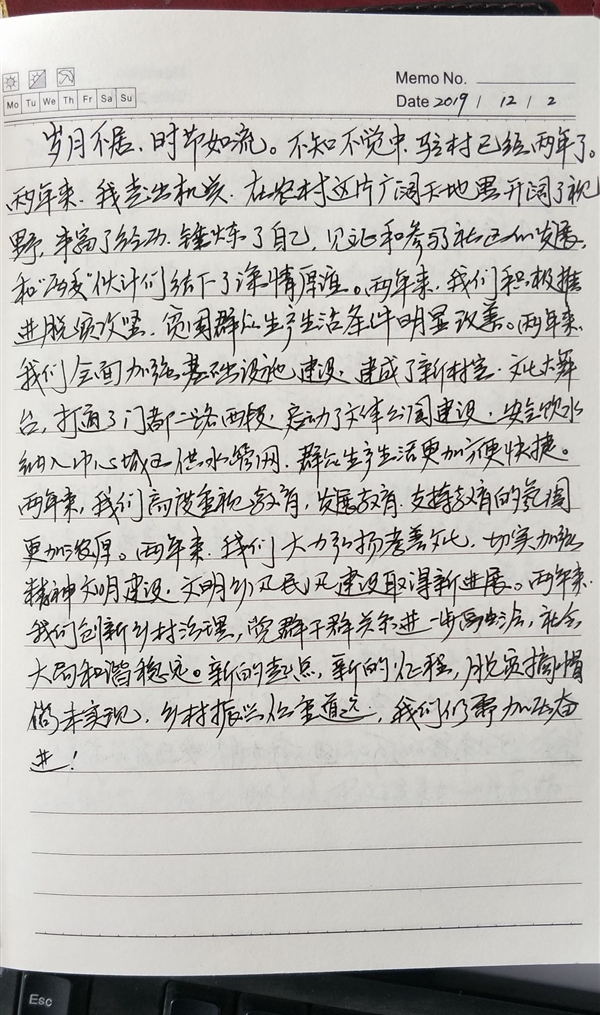 Memo No.
Mo Tu We Th Fr Sa Su
Date 2019 / 12 / 2
岁月不居、时节如流。不知不觉中,驻村已经两年了。
两年来,我走出机关,在农村这片广阔天地里开阔了视
野,丰富了经历,锤炼了自己,见证和参与社区的发展,
和“两委”伙计们结下了深情厚谊。两年来,我们积极推
进脱贫攻坚,贫困群众生产生活条件明显改善。两年来,
我们全面加强基础设施建设,建成了新村室、文化大舞
台,打通了门都一路西段,启动了文体公园建设,安全饮水
纳入中心城区供水管网,群众生产生活更加方便快捷。
两年来,我们高度重视教育,发展教育、支持教育的氛围
更加浓厚。两年来,我们大力弘扬孝善文化,切实加强
精神文明建设,文明乡风民风建设取得新进展。两年来,
我们创新乡村治理,党群干群关系进一步融洽,社会
大局和谐稳定。新的起点,新的征程,脱贫摘帽
尚未实现,乡村振兴任重道远,我们仍需加压奋
进!
Esc